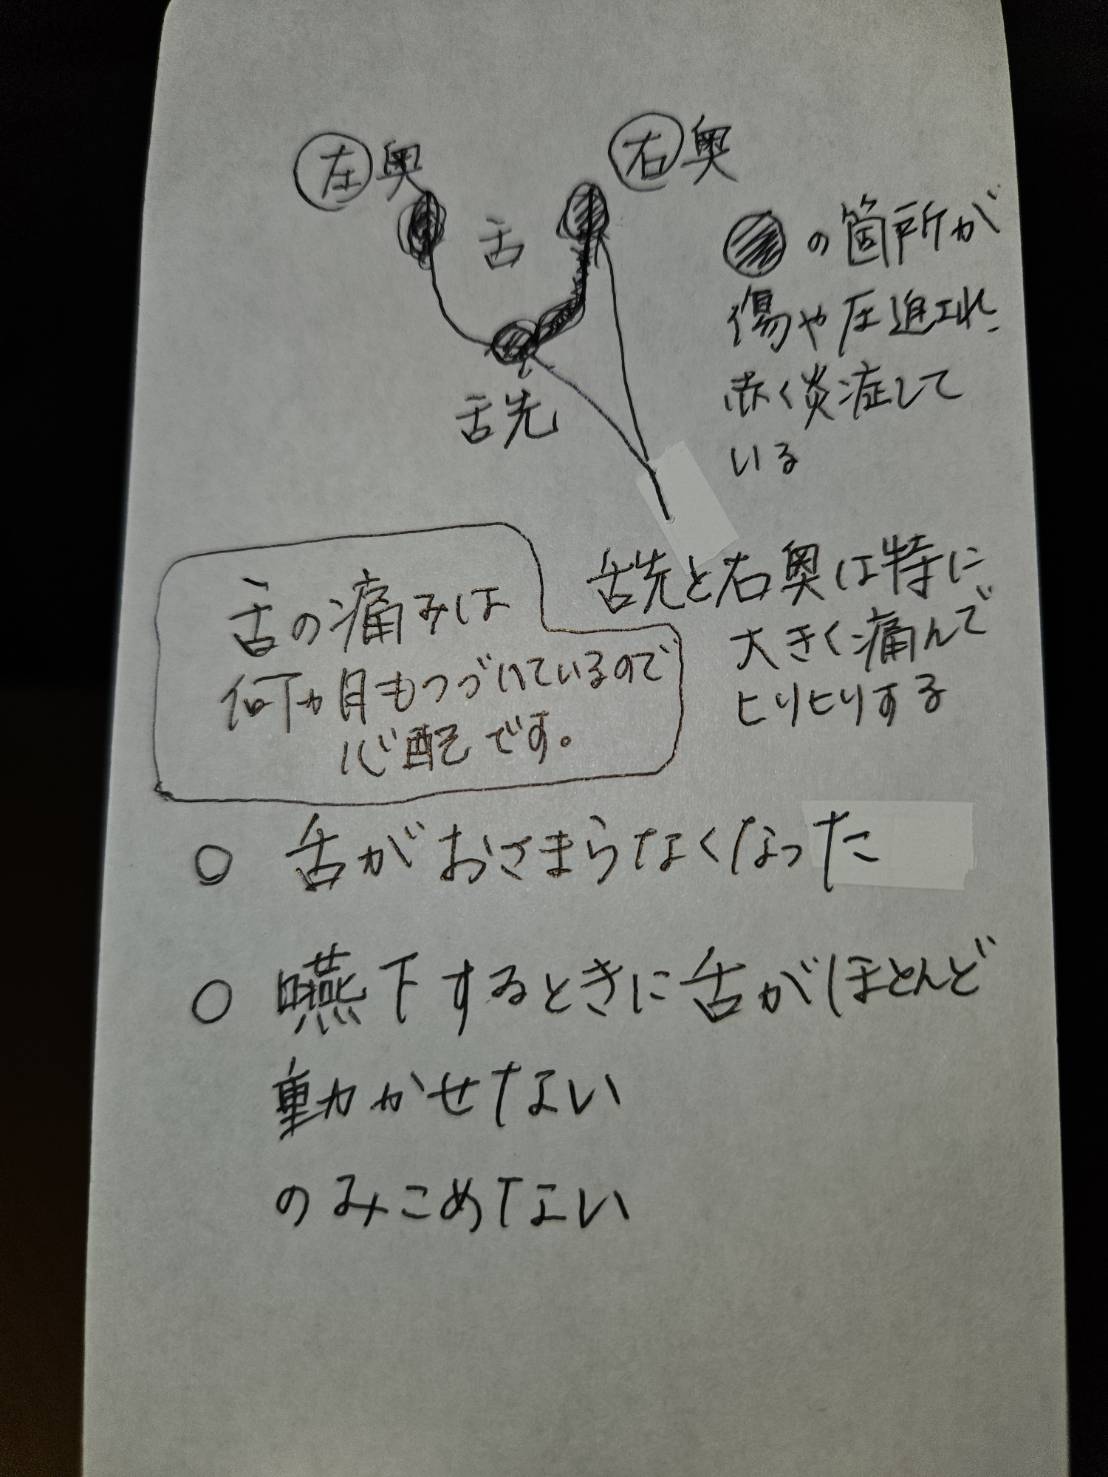 左奥
右奥
舌
舌先
の箇所が
傷や圧迫され
赤く炎症して
いる
舌先と右奥は特に
大きく痛んで
ヒリヒリする
舌の痛みは
何ヵ月もつづいているので
心配です。
○ 舌がおさまらなくなった
○ 嚥下するときに舌がほとんど
動かせない
のみこめない